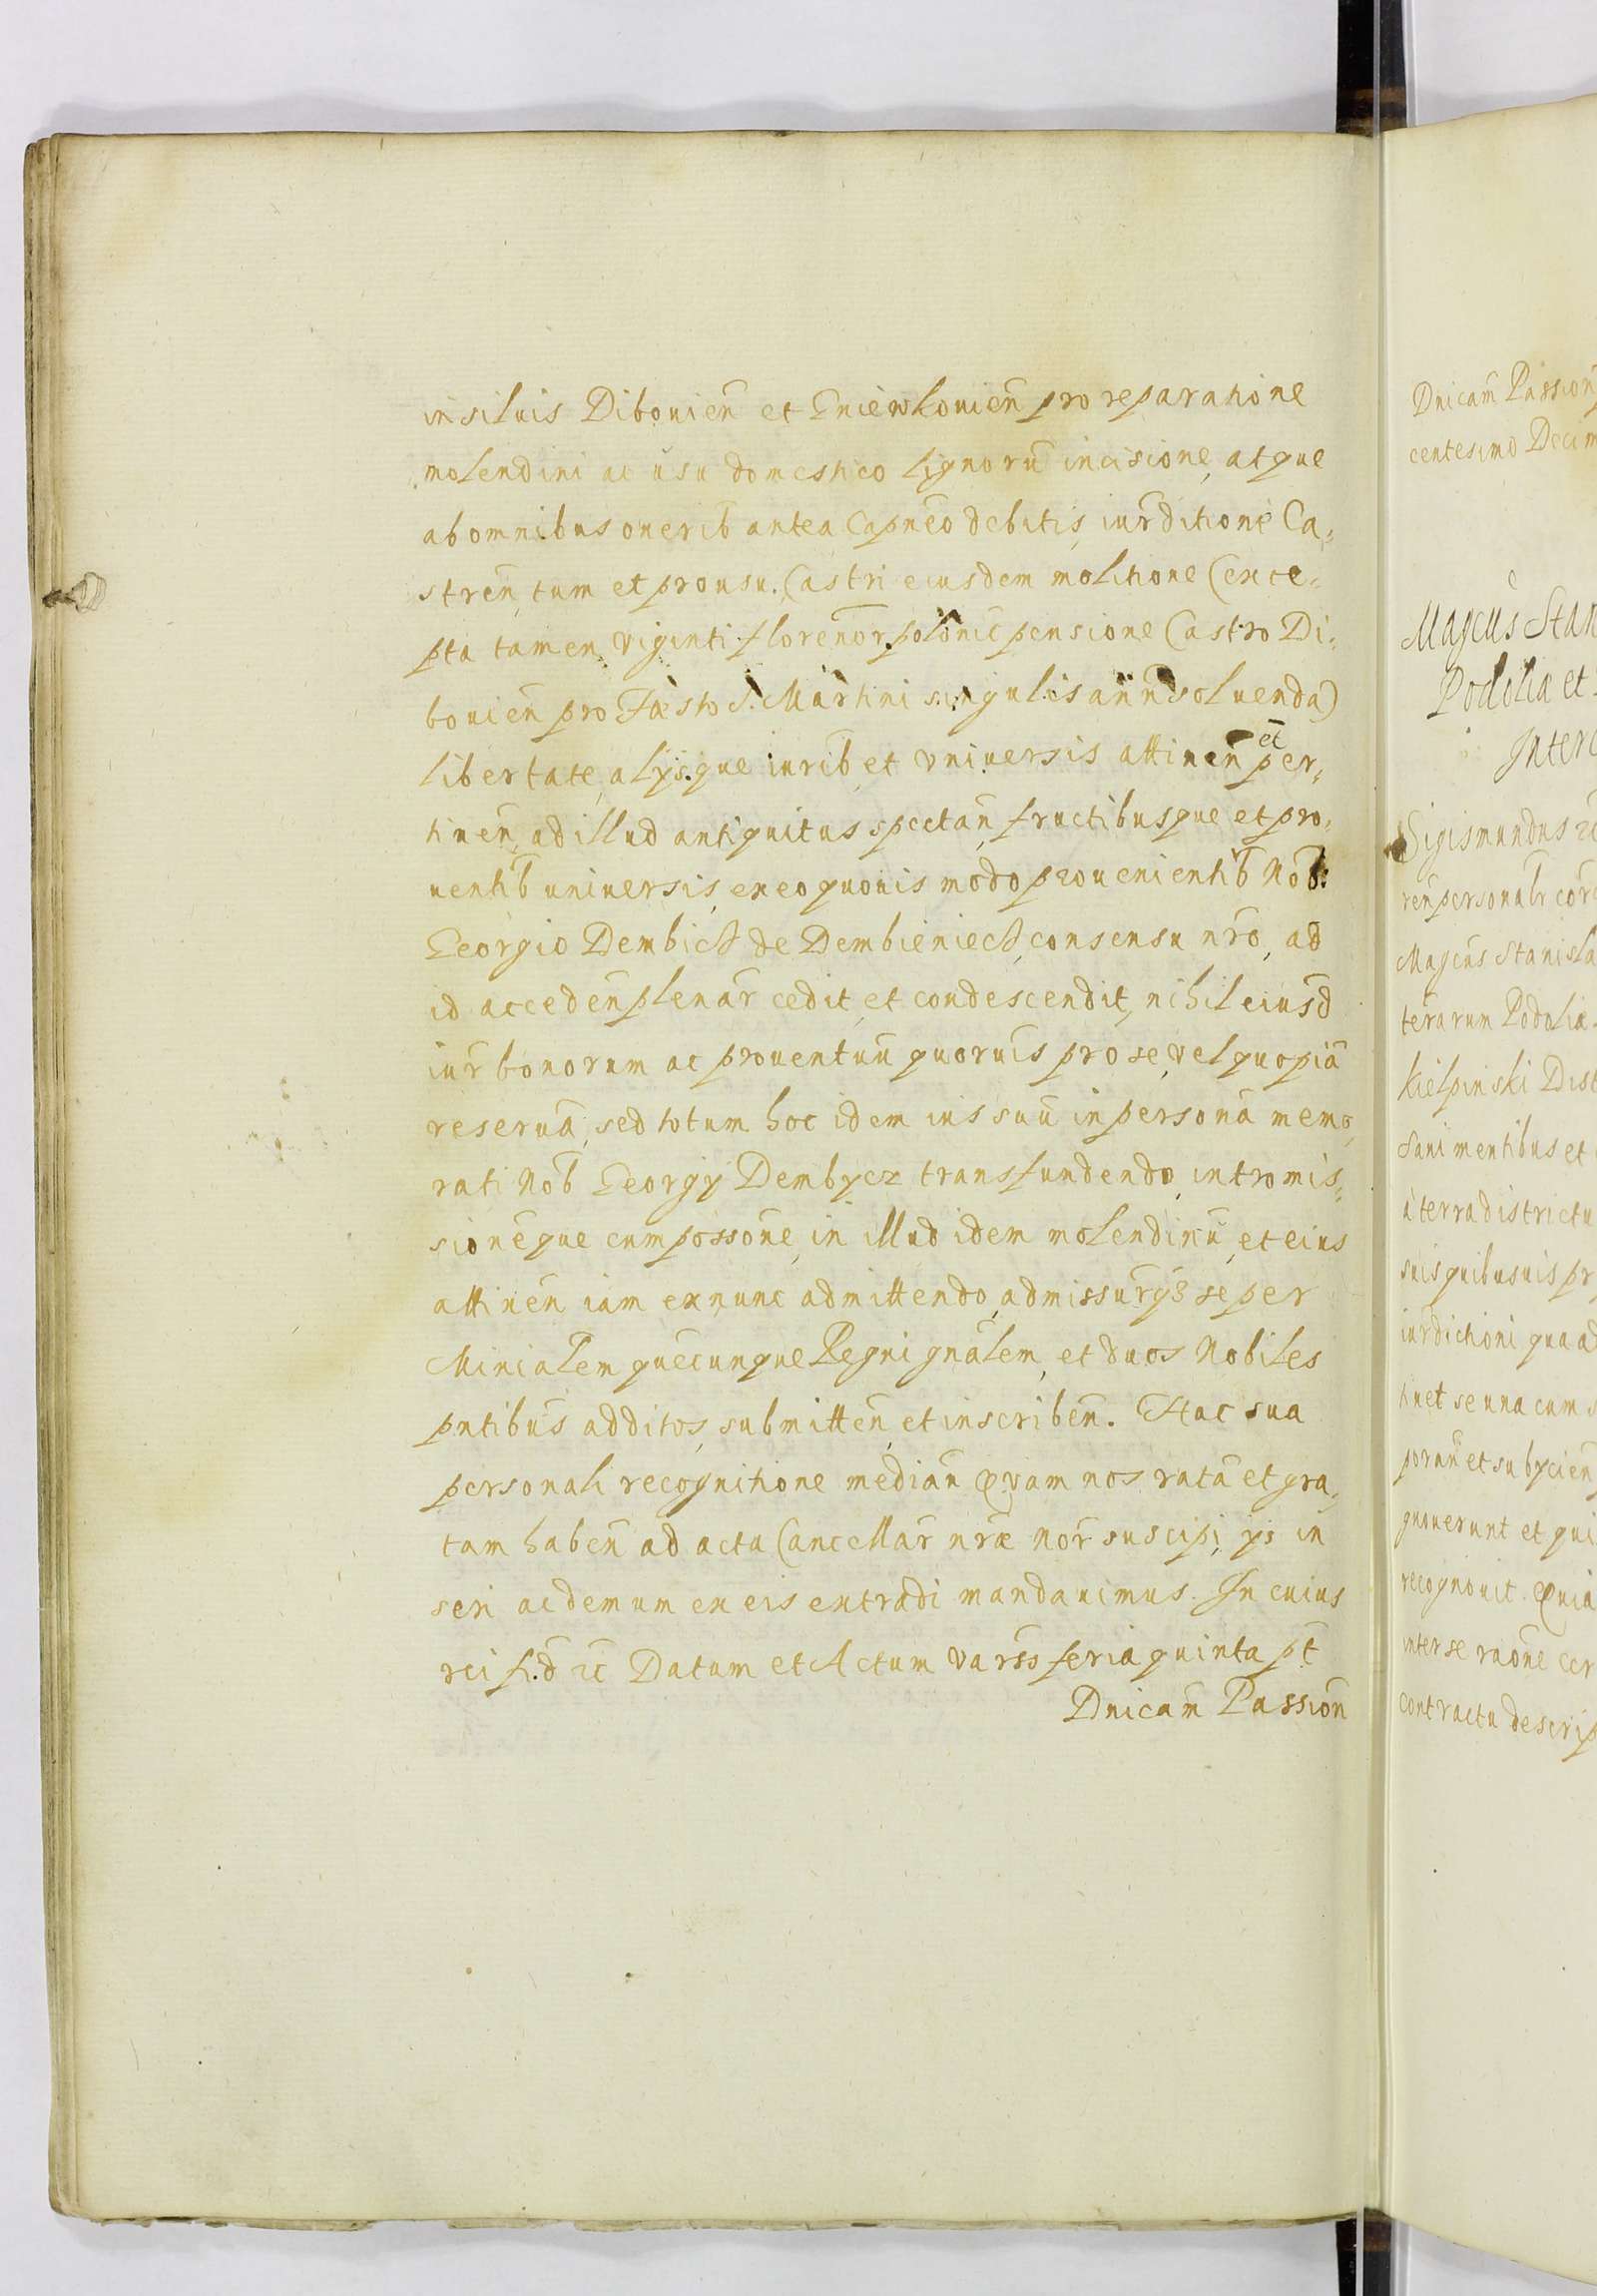 in siluis Dibouien̄ et Gniewkouien̄ pro reparatione
molendini ac usu domestico lignorū incisione, atque
ab omnibus onerib̄ antea Capn̄eo debitis, iurd̄itione Ca=
stren̄, tum et pro usu Castri eiusdem molitione (exce=
pta tamen viginti florenor̄ polonic̄ pensione Castro Di=
bouien̄ pro Fæsto S. Martini singulis an̄n̄ soluenda)
libertate, alijsque iurib̄ et vniuersis attinen̄ et per=
tinen̄, ad illud antiquitus spectan̄, fructibusque et pro=
uentib̄ uniuersis, ex eo quouis modo prouenientib̄ Nob̄:
Georgio Dembicz de Dembieniecz, consensu nr̄o, ad
id acceden̄ plenar̄ cedit, et condescendit, nihil eiusd̄
iur̄ bonorum ac prouentuū quoruis pro se, vel quopiā
reseruā, sed totum hoc idem ius suū in personā memo=
rati Nob̄ Georgij Dembycz transfundendo, intromis=
sionēque cum posson̄e, in illud idem molendinū, et eius
attinen̄ iam ex nunc admittendo, admissurq́₃ se per
Minialem quēcunque Regni gn̄alem, et duos Nobiles
pn̄tibus additos, submitten̄ et inscriben̄. Hac sua
personali recognitione median̄ Quam nos ratā et gra=
tam haben̄ ad acta Cancellar̄ nr̄æ Nor̄ suscipi, ijs in
seri ac demum ex eis extradi mandauimus. In cuius
rei fid̄ ꝛc̄ Datum et Actum Vars̄s feria quinta pt̄
Dn̄icam̄ Passion̄
Dnicam̄ Passion̄
centesimo Decim
Magcūs Stan
Podolia et
Inter
Sigismundus ꝛc
ren̄ personalr̄ cor
Magcūs Stanisla
terrarum Podoliæ
Kiełpinski Dist
sani mentibus et
à terra districtu
suis quibusuis pr
iurd̄ictioni qua ad
tinet se una cum s
poran̄ et subycien̄
gnouerunt et qui
recognouit. Quia
inter se raōne cer
contractu descrip